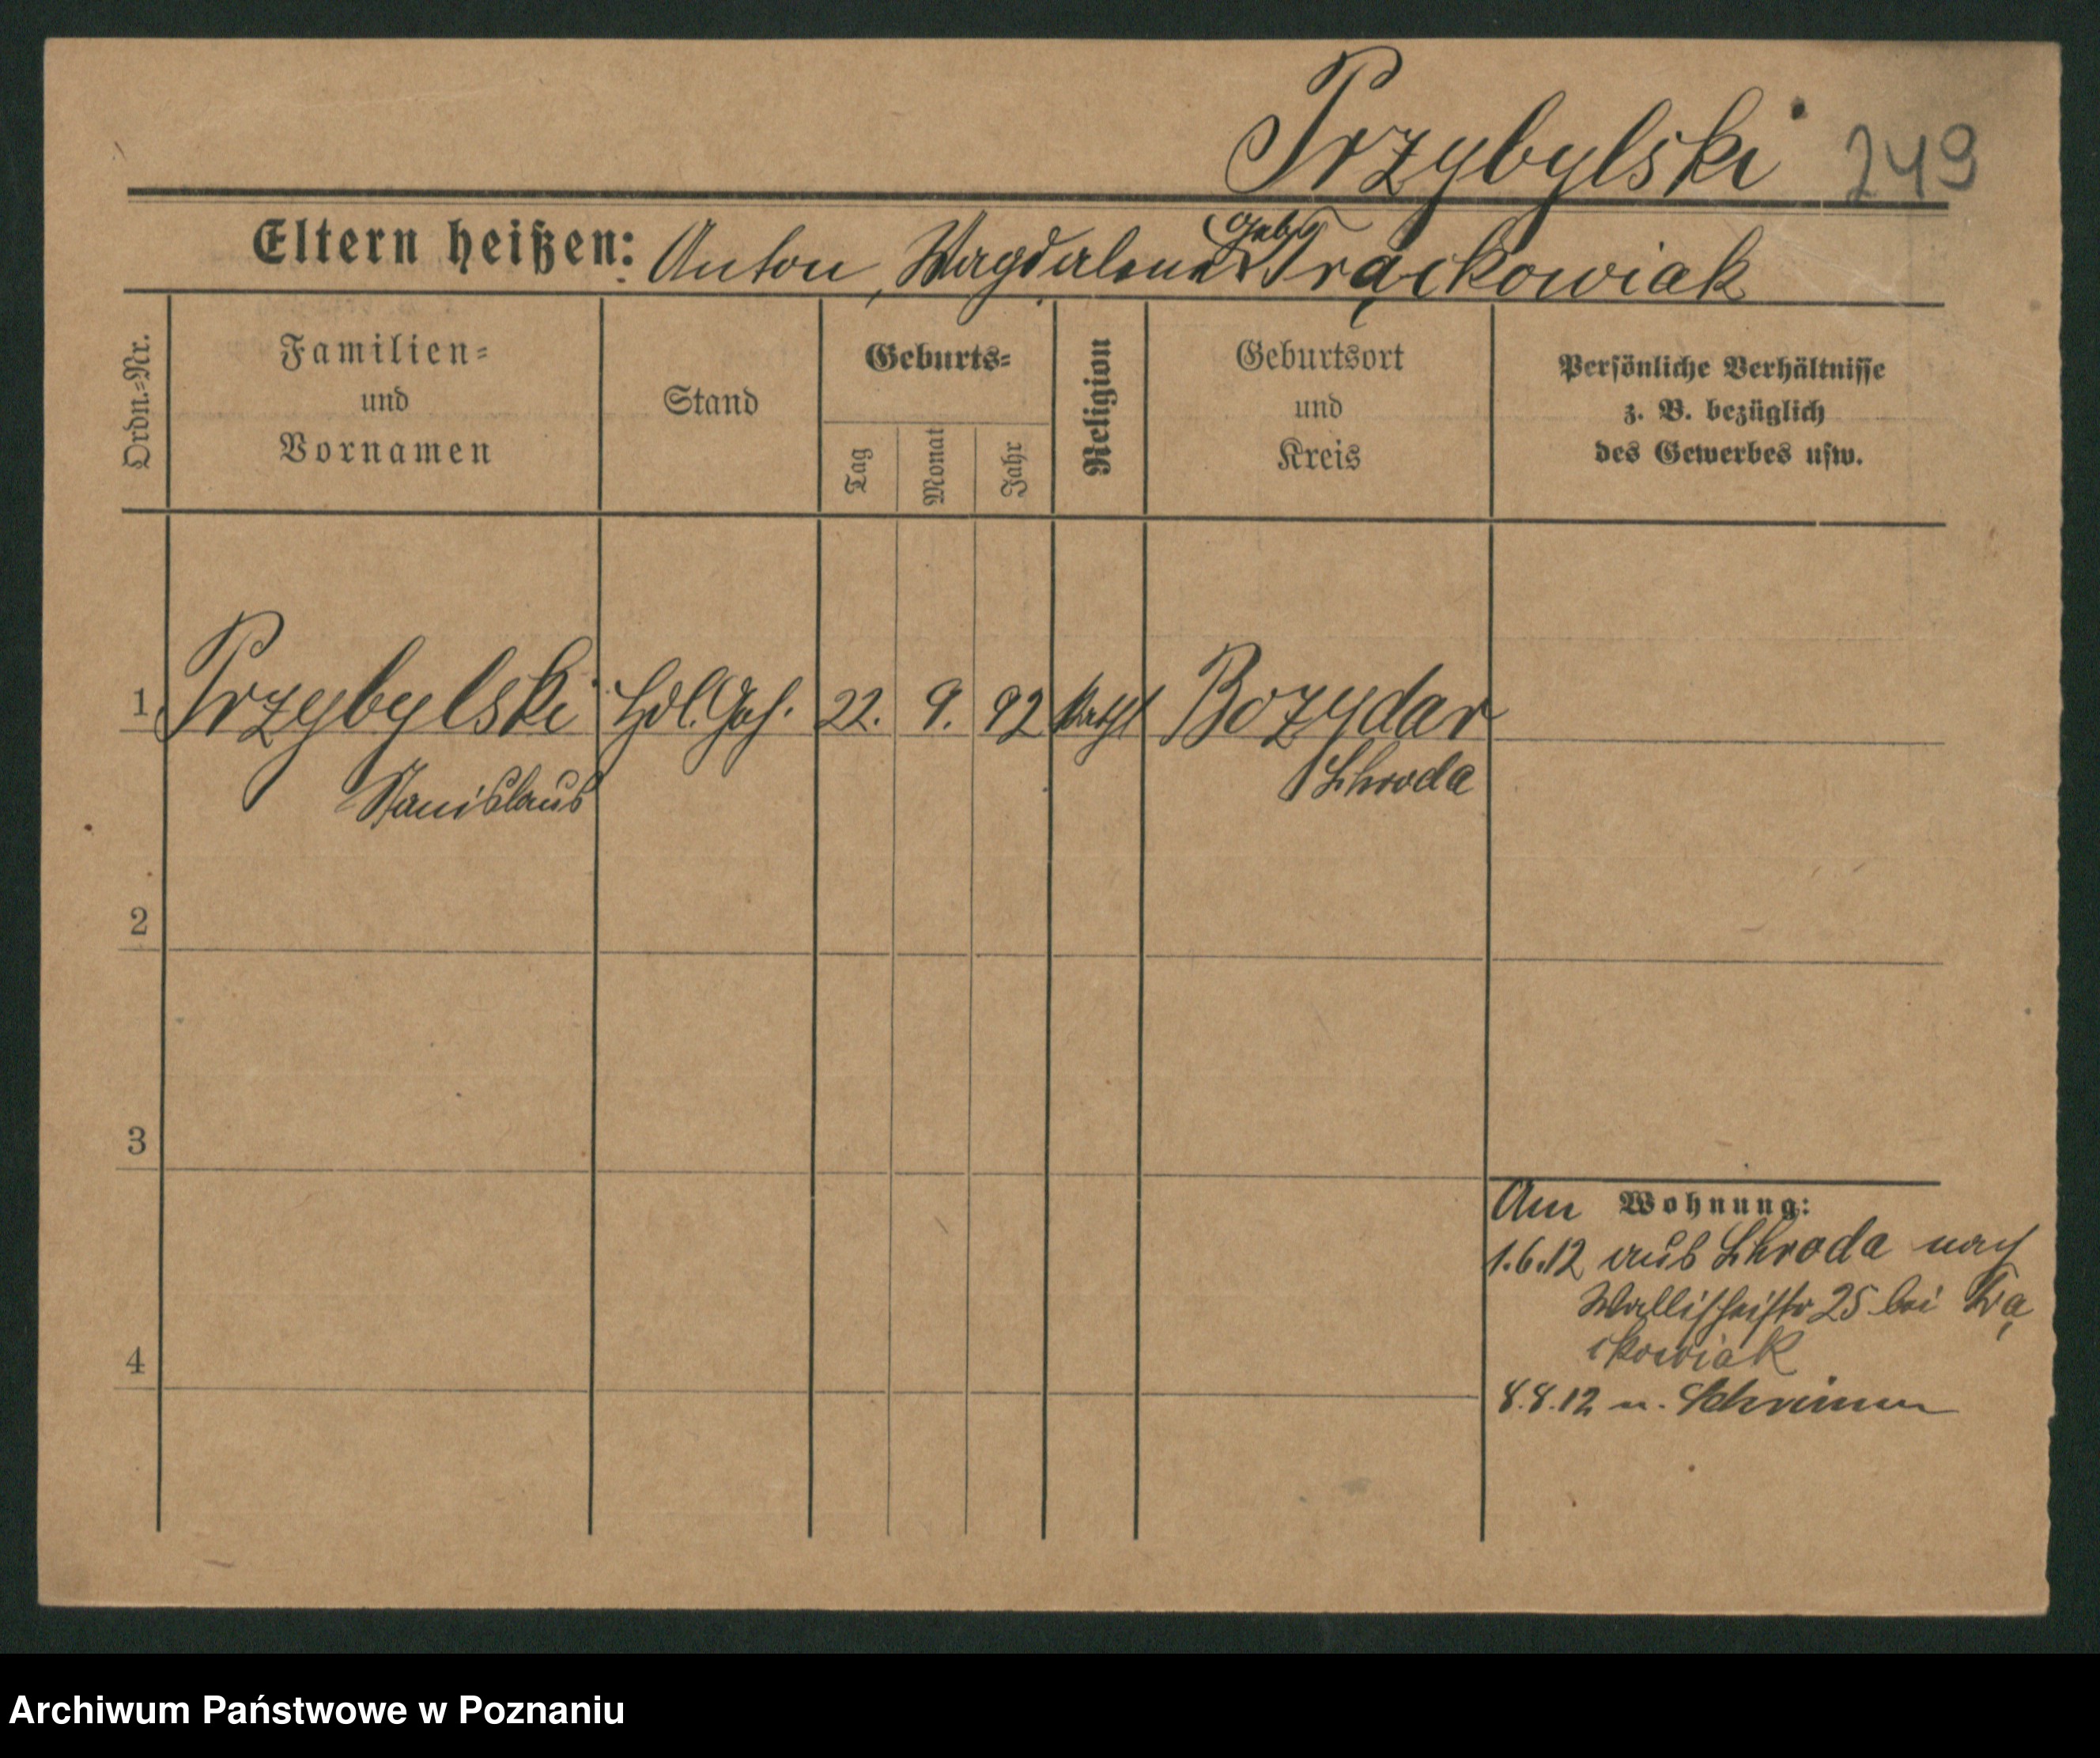 Przybylski 249
Eltern heißen: Anton, Magdalena geb. Trąckowiak
Ordn.=Nr.
Familien=
und
Vornamen
Stand
Geburts=
Tag
Monat
Jahr
Religion
Geburtsort
und
Kreis
Persönliche Verhältnisse
z. B. bezüglich
des Gewerbes usw.
1 Przybylski Hdl. Geh. 22. 9. 92 kath Bozydar
Stanislaus Schroda
2
3
4
Am Wohnung:
1.6.12 aus Schroda nach
Wallischeistr 25 bei
ckowiak
8.8.12 n. Schrimm
Archiwum Państwowe w Poznaniu